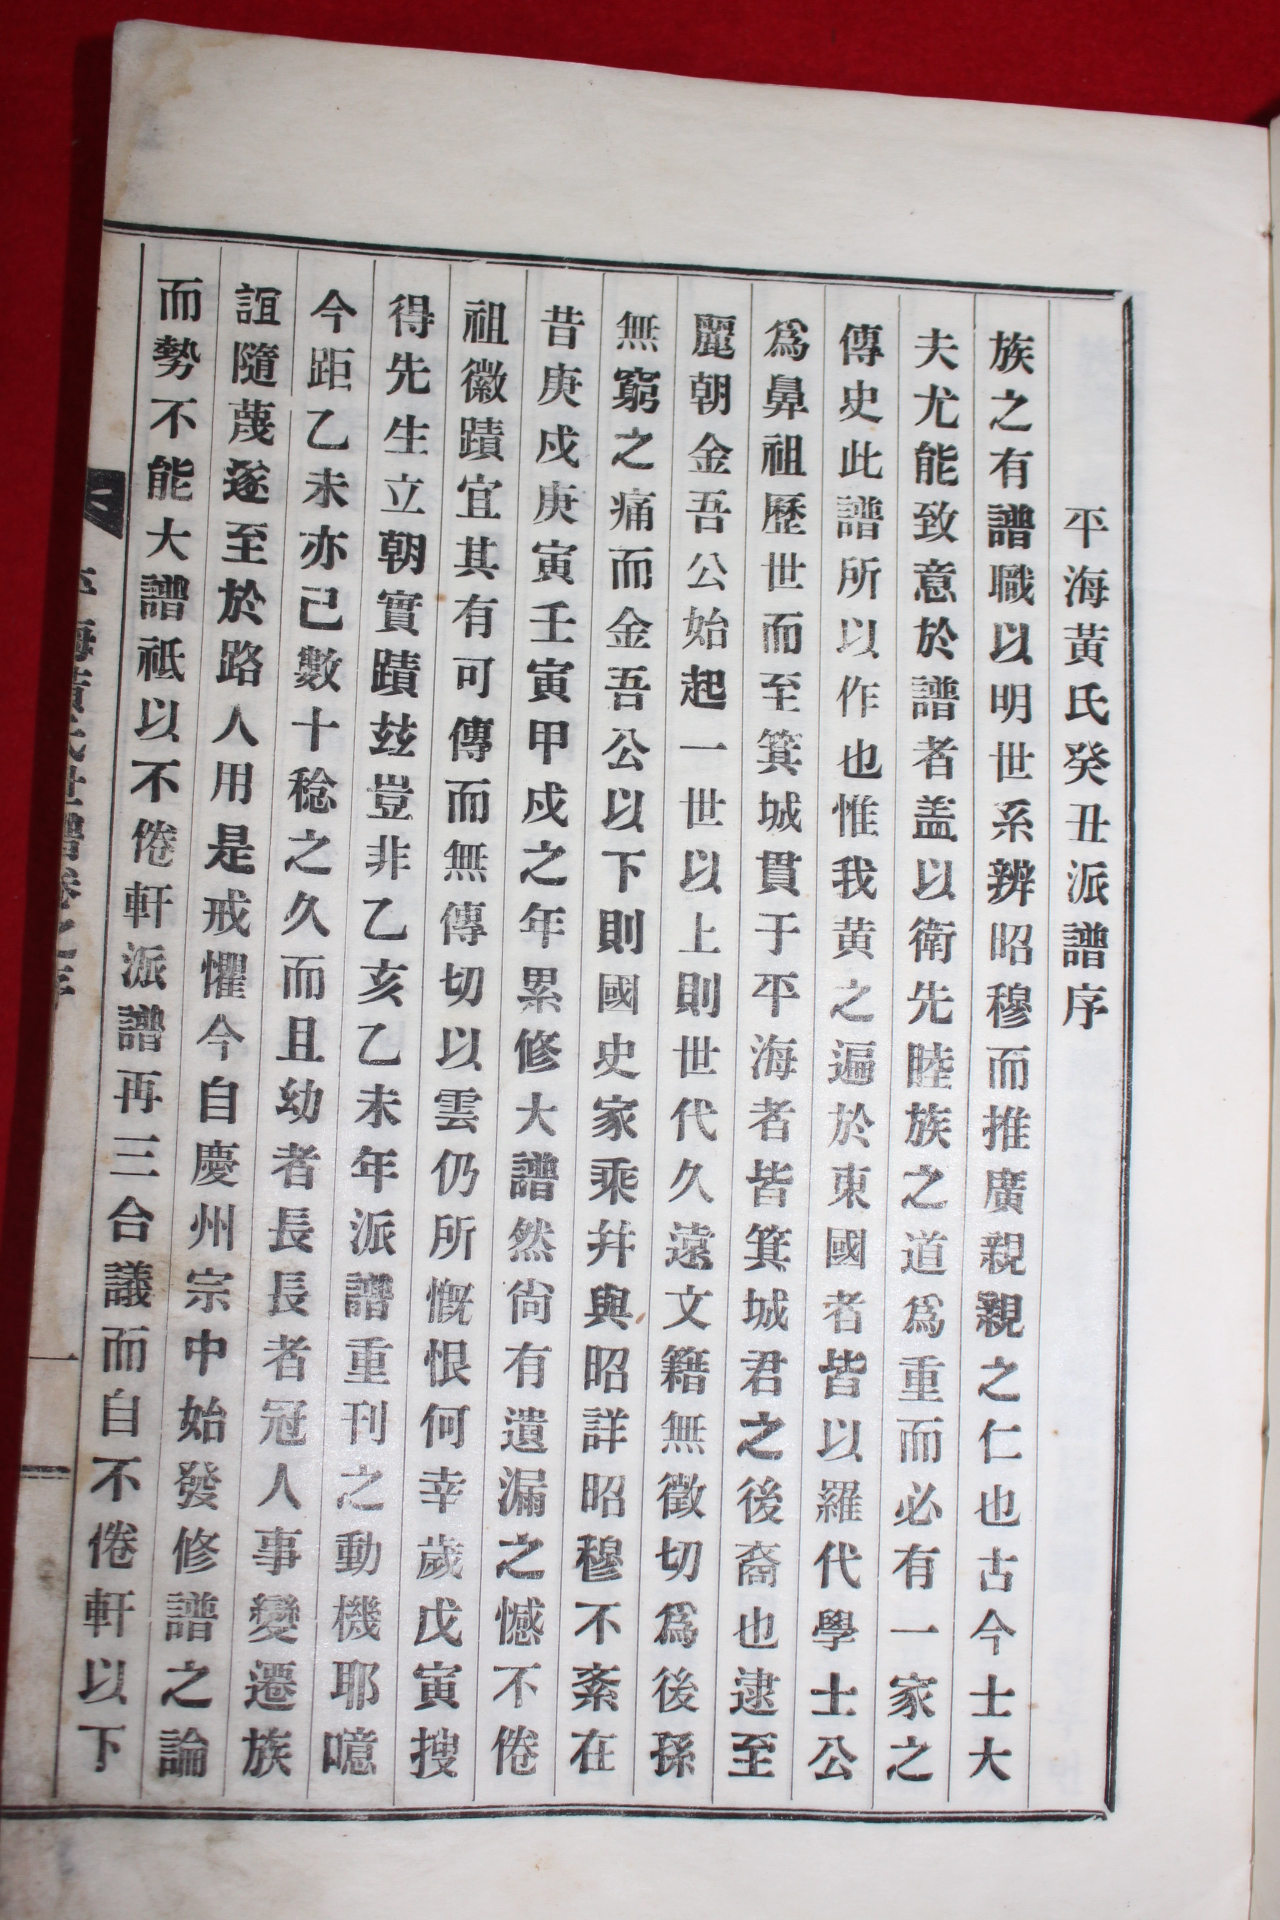 平海黃氏癸丑派譜序
族之有譜職以明世系辨昭穆而推廣親親之仁也古今士大
夫尤能致意於譜者盖以衛先睦族之道爲重而必有一家之
傳史此譜所以作也惟我黄之遍於東國者皆以羅代學士公
爲鼻祖歷世而至箕城貫于平海者皆箕城君之後裔也逮至
麗朝金吾公始起一世以上則世代久遠文籍無徵切爲後孫
無窮之痛而金吾公以下則國史家乘幷與昭詳昭穆不紊在
昔庚戍庚寅壬寅甲戍之年累修大譜然尙有遺漏之憾不倦
祖徽蹟宜其有可傳而無傳切以雲仍所慨恨何幸歲戊寅搜
得先生立朝實蹟玆豈非乙亥乙未年派譜重刊之動機耶噫
今距乙未亦己數十稔之久而且幼者長長者冠人事變遷族
誼隨蔑遂至於路人用是戒懼今自慶州宗中始發修譜之論
而勢不能大譜祗以不倦軒派譜再三合議而自不倦軒以下
平海黃氏世譜卷之序
一